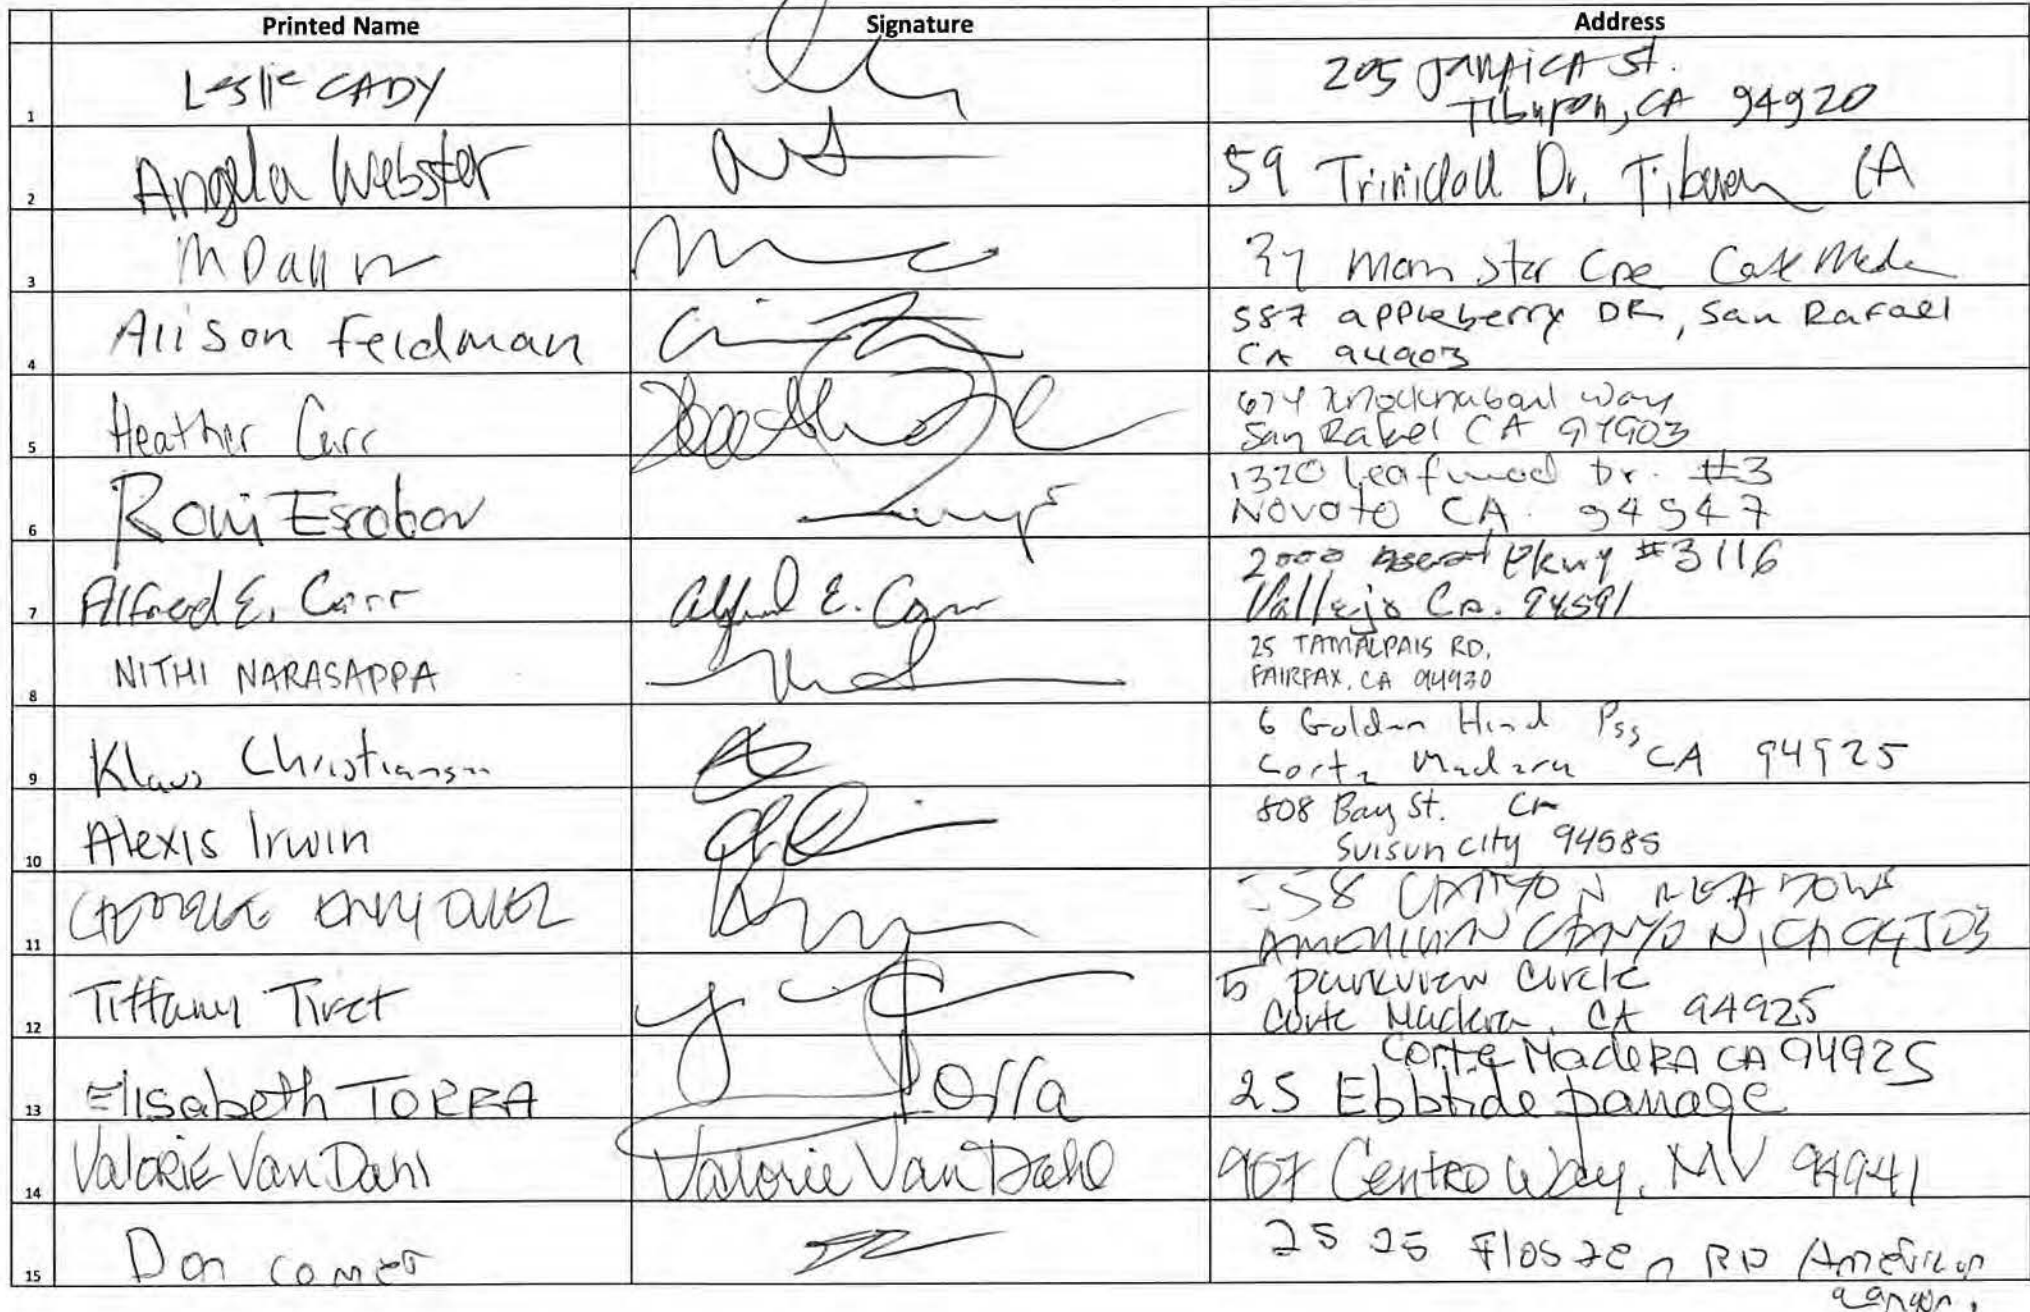 Printed Name Signature Address
1 Leslie CADY 205 Jamaica St.
Tiburon, CA 94920
2 Angela Webster 59 Trinidad Dr. Tiburon CA
3 37
4 Alison Feldman 587 appleberry DR, San Rafael
CA 94903
5 Heather Carr 674 Way
San Rafael CA 94903
6 Roni Escobar 1320 Leafwood Dr. #3
Novato CA. 94947
7 Alfred E. Carr Alfred E. Carr 2000 Pkwy #3116
Vallejo Ca. 94591
8 NITHI NARASAPPA 25 TAMALPAIS RD,
FAIRFAX, CA 94930
9 Klaus Christiansen 6 Golden Hind Psg
Corte Madera CA 94925
10 Alexis Irwin 808 Bay St. CA
Suisun City 94585
11 GEORGE ENRIQUEZ CANYON MEADOWS
AMERICAN CANYON, CA 94503
12 Tiffany Tiret 5 Parkview Circle
Corte Madera, CA 94925
13 Elisabeth TORRA Torra Corte MadeRA CA 94925
25 Ebbtide passage
14 ValoRIE Van Dahl Valorie Van Dahl 907 Centro Way, MV 94941
15 Don comer 25 25 RD American
canyon.